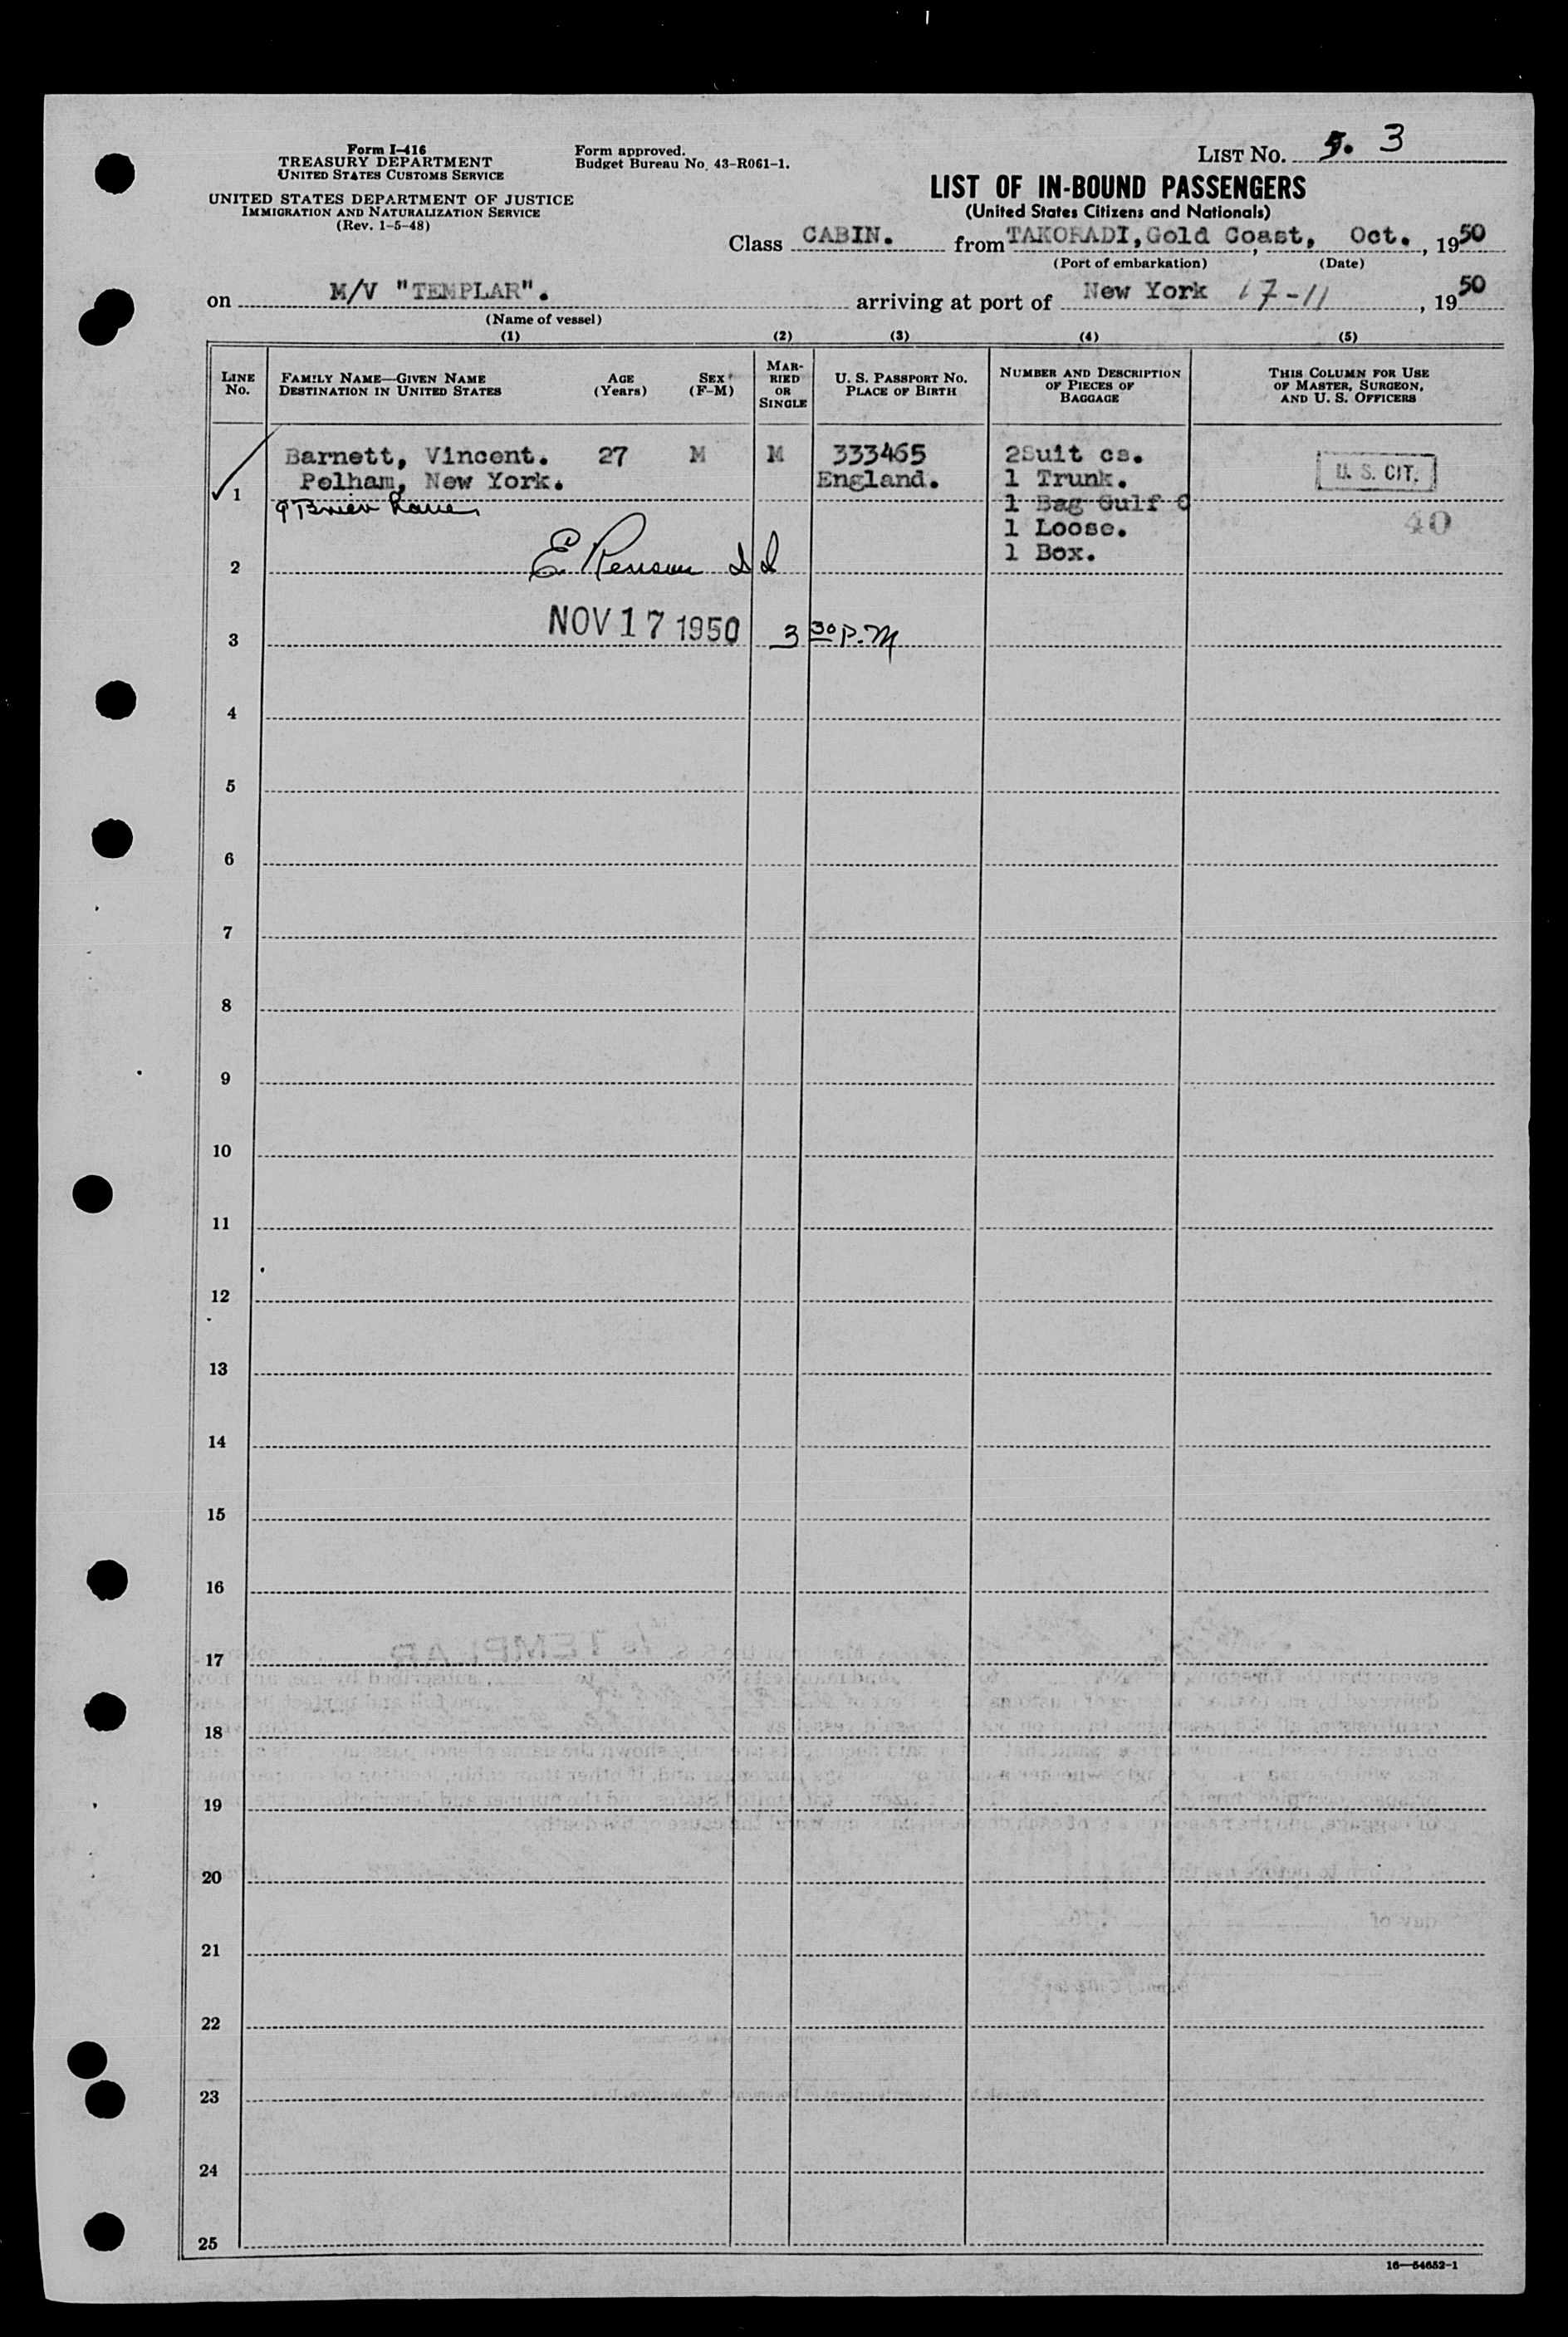 Form I-416
TREASURY DEPARTMENT
UNITED STATES CUSTOMS SERVICE
UNITED STATES DEPARTMENT OF JUSTICE
IMMIGRATION AND NATURALIZATION SERVICE
(Rev. 1-5-48)
Form approved.
Budget Bureau No. 43-R061-1.
LIST No. 3
LIST OF IN-BOUND PASSENGERS
(United States Citizens and Nationals)
Class CABIN. from TAKORADI, Gold Coast, Oct., 1950
(Port of embarkation) (Date)
on M/V "TEMPLAR". arriving at port of New York 17-11, 1950
(Name of vessel)
(1) (2) (3) (4) (5)
LINE No.
FAMILY NAME—GIVEN NAME
DESTINATION IN UNITED STATES
AGE (Years)
SEX (F-M)
MARRIED OR SINGLE
U. S. PASSPORT No.
PLACE OF BIRTH
NUMBER AND DESCRIPTION OF PIECES OF BAGGAGE
THIS COLUMN FOR USE OF MASTER, SURGEON, AND U. S. OFFICERS
Barnett, Vincent. 27 M M 333465 2Suit cs.
Pelham, New York. England. 1 Trunk. U. S. CIT.
1
1 Bag Gulf C
1 Loose. 40
1 Box.
2
NOV 17 1950 3 30 P.M
3
4
5
6
7
8
9
10
11
12
13
14
15
16
17
18
19
20
21
22
23
24
25
16—54652-1